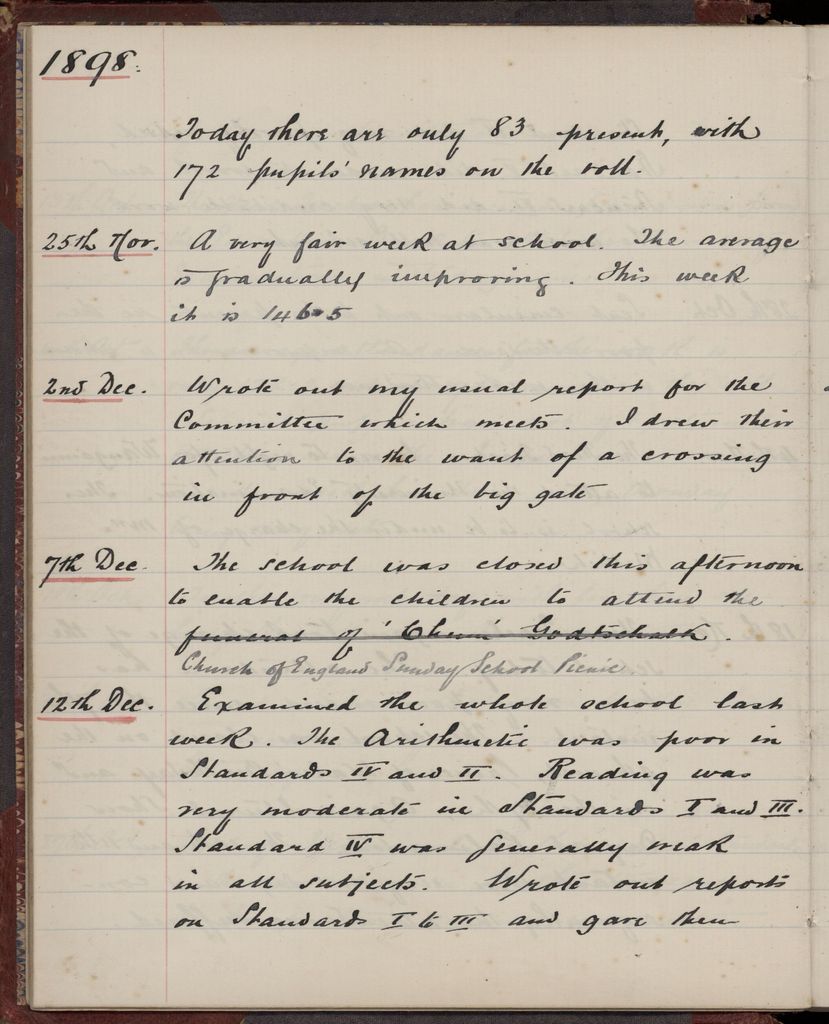 1898.
Today there are only 83 present, with
172 pupils' names on the roll.
25th Nov. A very fair week at school. The average
is gradually improving. This week
it is 146.5
2nd Dec. Wrote out my usual report for the
Committee which meets. I drew their
attention to the want of a crossing
in front of the big gate
7th Dec. The school was closed this afternoon
to enable the children to attend the
funeral of 'Chum' Godtschalk.
Church of England Sunday School Picnic.
12th Dec. Examined the whole school last
week. The Arithmetic was poor in
Standards IV and II. Reading was
very moderate in Standards I and III.
Standard IV was generally weak
in all subjects. Wrote out reports
on Standards I to III and gave them